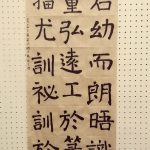 君幼而朗晤識
量弘遠工於篆
描尤訓祕訓於